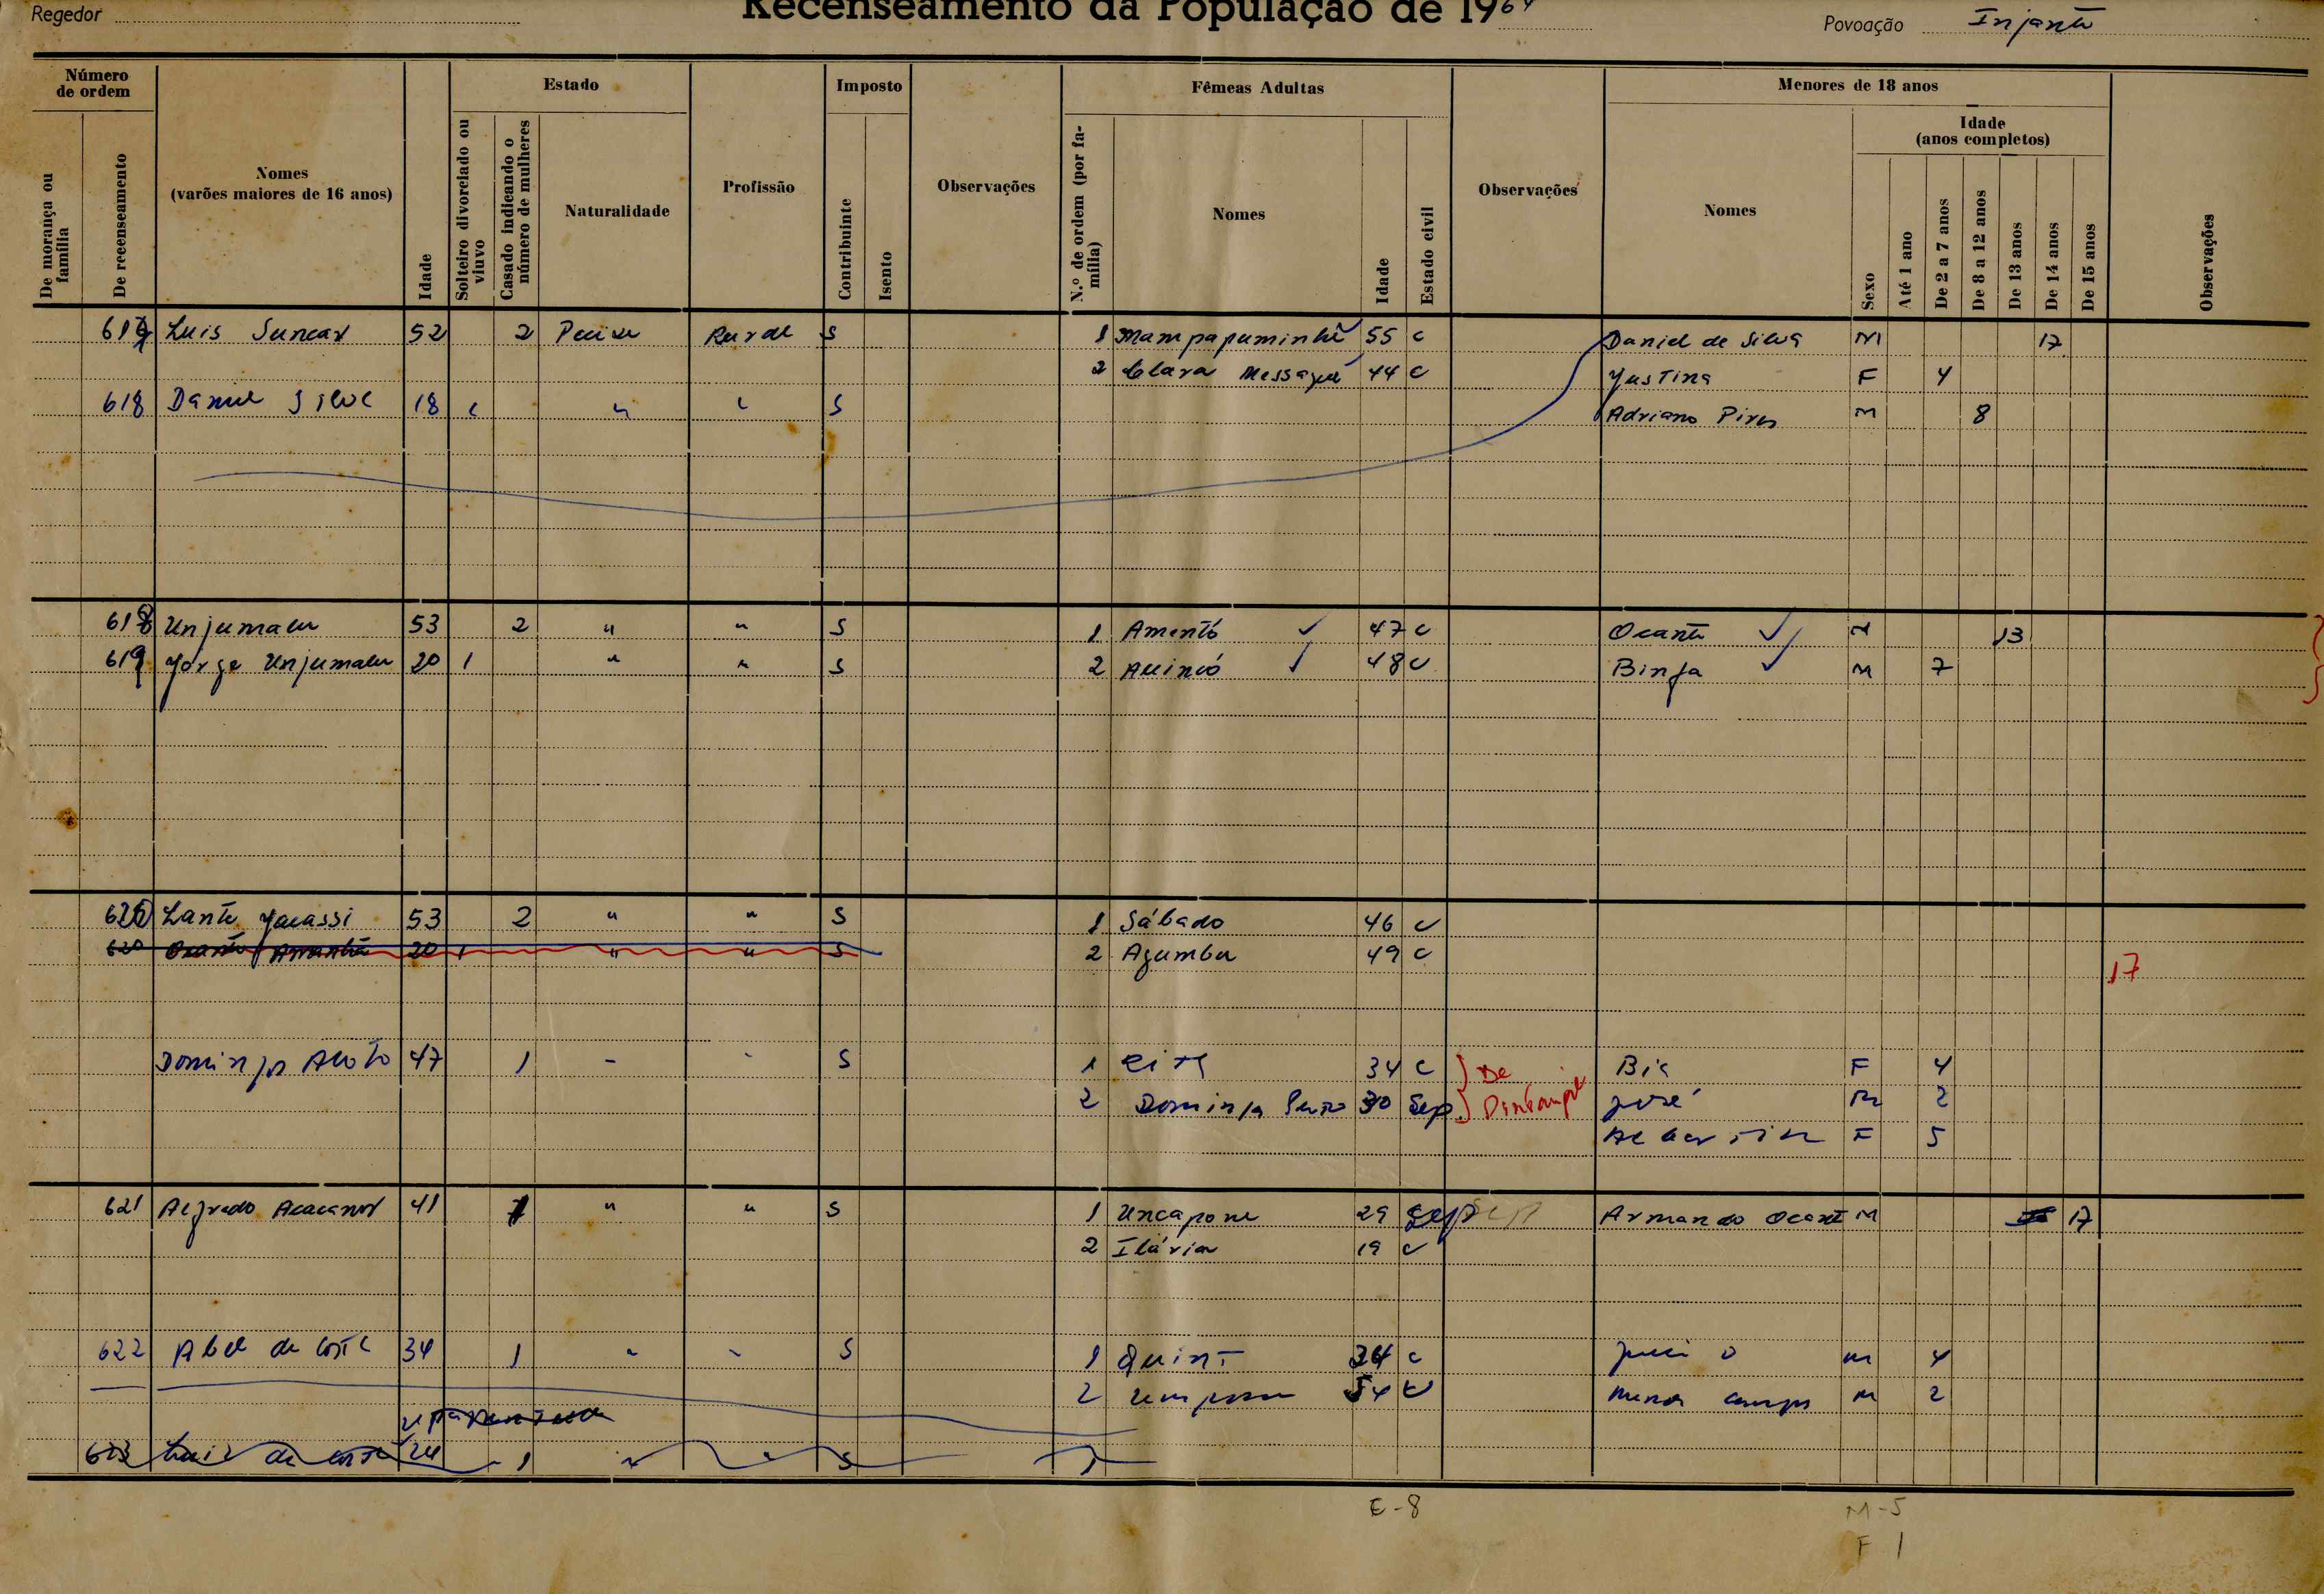 Regedor
Recenseamento da População de 1964
Povoação Injante
Número de ordem
De morança ou família
De recenseamento
Nomes (varões maiores de 16 anos)
Idade
Estado
Solteiro divorciado ou viuvo
Casado indicando o número de mulheres
Naturalidade
Profissão
Imposto
Contribuinte
Isento
Observações
Fêmeas Adultas
N.º de ordem (por família)
Nomes
Idade
Estado civil
Observações
Menores de 18 anos
Nomes
Sexo
Idade (anos completos)
Até 1 ano
De 2 a 7 anos
De 8 a 12 anos
De 13 anos
De 14 anos
De 15 anos
Observações
617 Luis Suncar 52 2 Pecixe Rural S 1 Mampapuminhé 55 c Daniel de Silva M 17
2 Clara Messagué 44 c Justina F 4
618 Daniel Silva 18 S Adriano Pires M 8
618 Unjumalu 53 2 " " S 1 Amontó 47 c Ocante 13
619 Jorge Unjumalu 20 1 " " S 2 48 c Binfa M 7
620 Lante Jacassi 53 2 " " S 1 Sábado 46 c
620 20 1 " " S 2 Agumba 49 c
17
Domingos 47 1 S 1 34 c De Bia F 4
2 Dominga 30 Sep José M 2
F 5
621 Alfredo 41 1 " " S 1 Uncapone 29 Sep Sep Armando Ocante M 17
2 Ilária 19 c
622 Abel da Costa 34 1 " " S 1 Quint 34 c m 4
2 54 c M 2
623 Luis da Costa 24 1 " " S 1
E-8
M-5
F 1